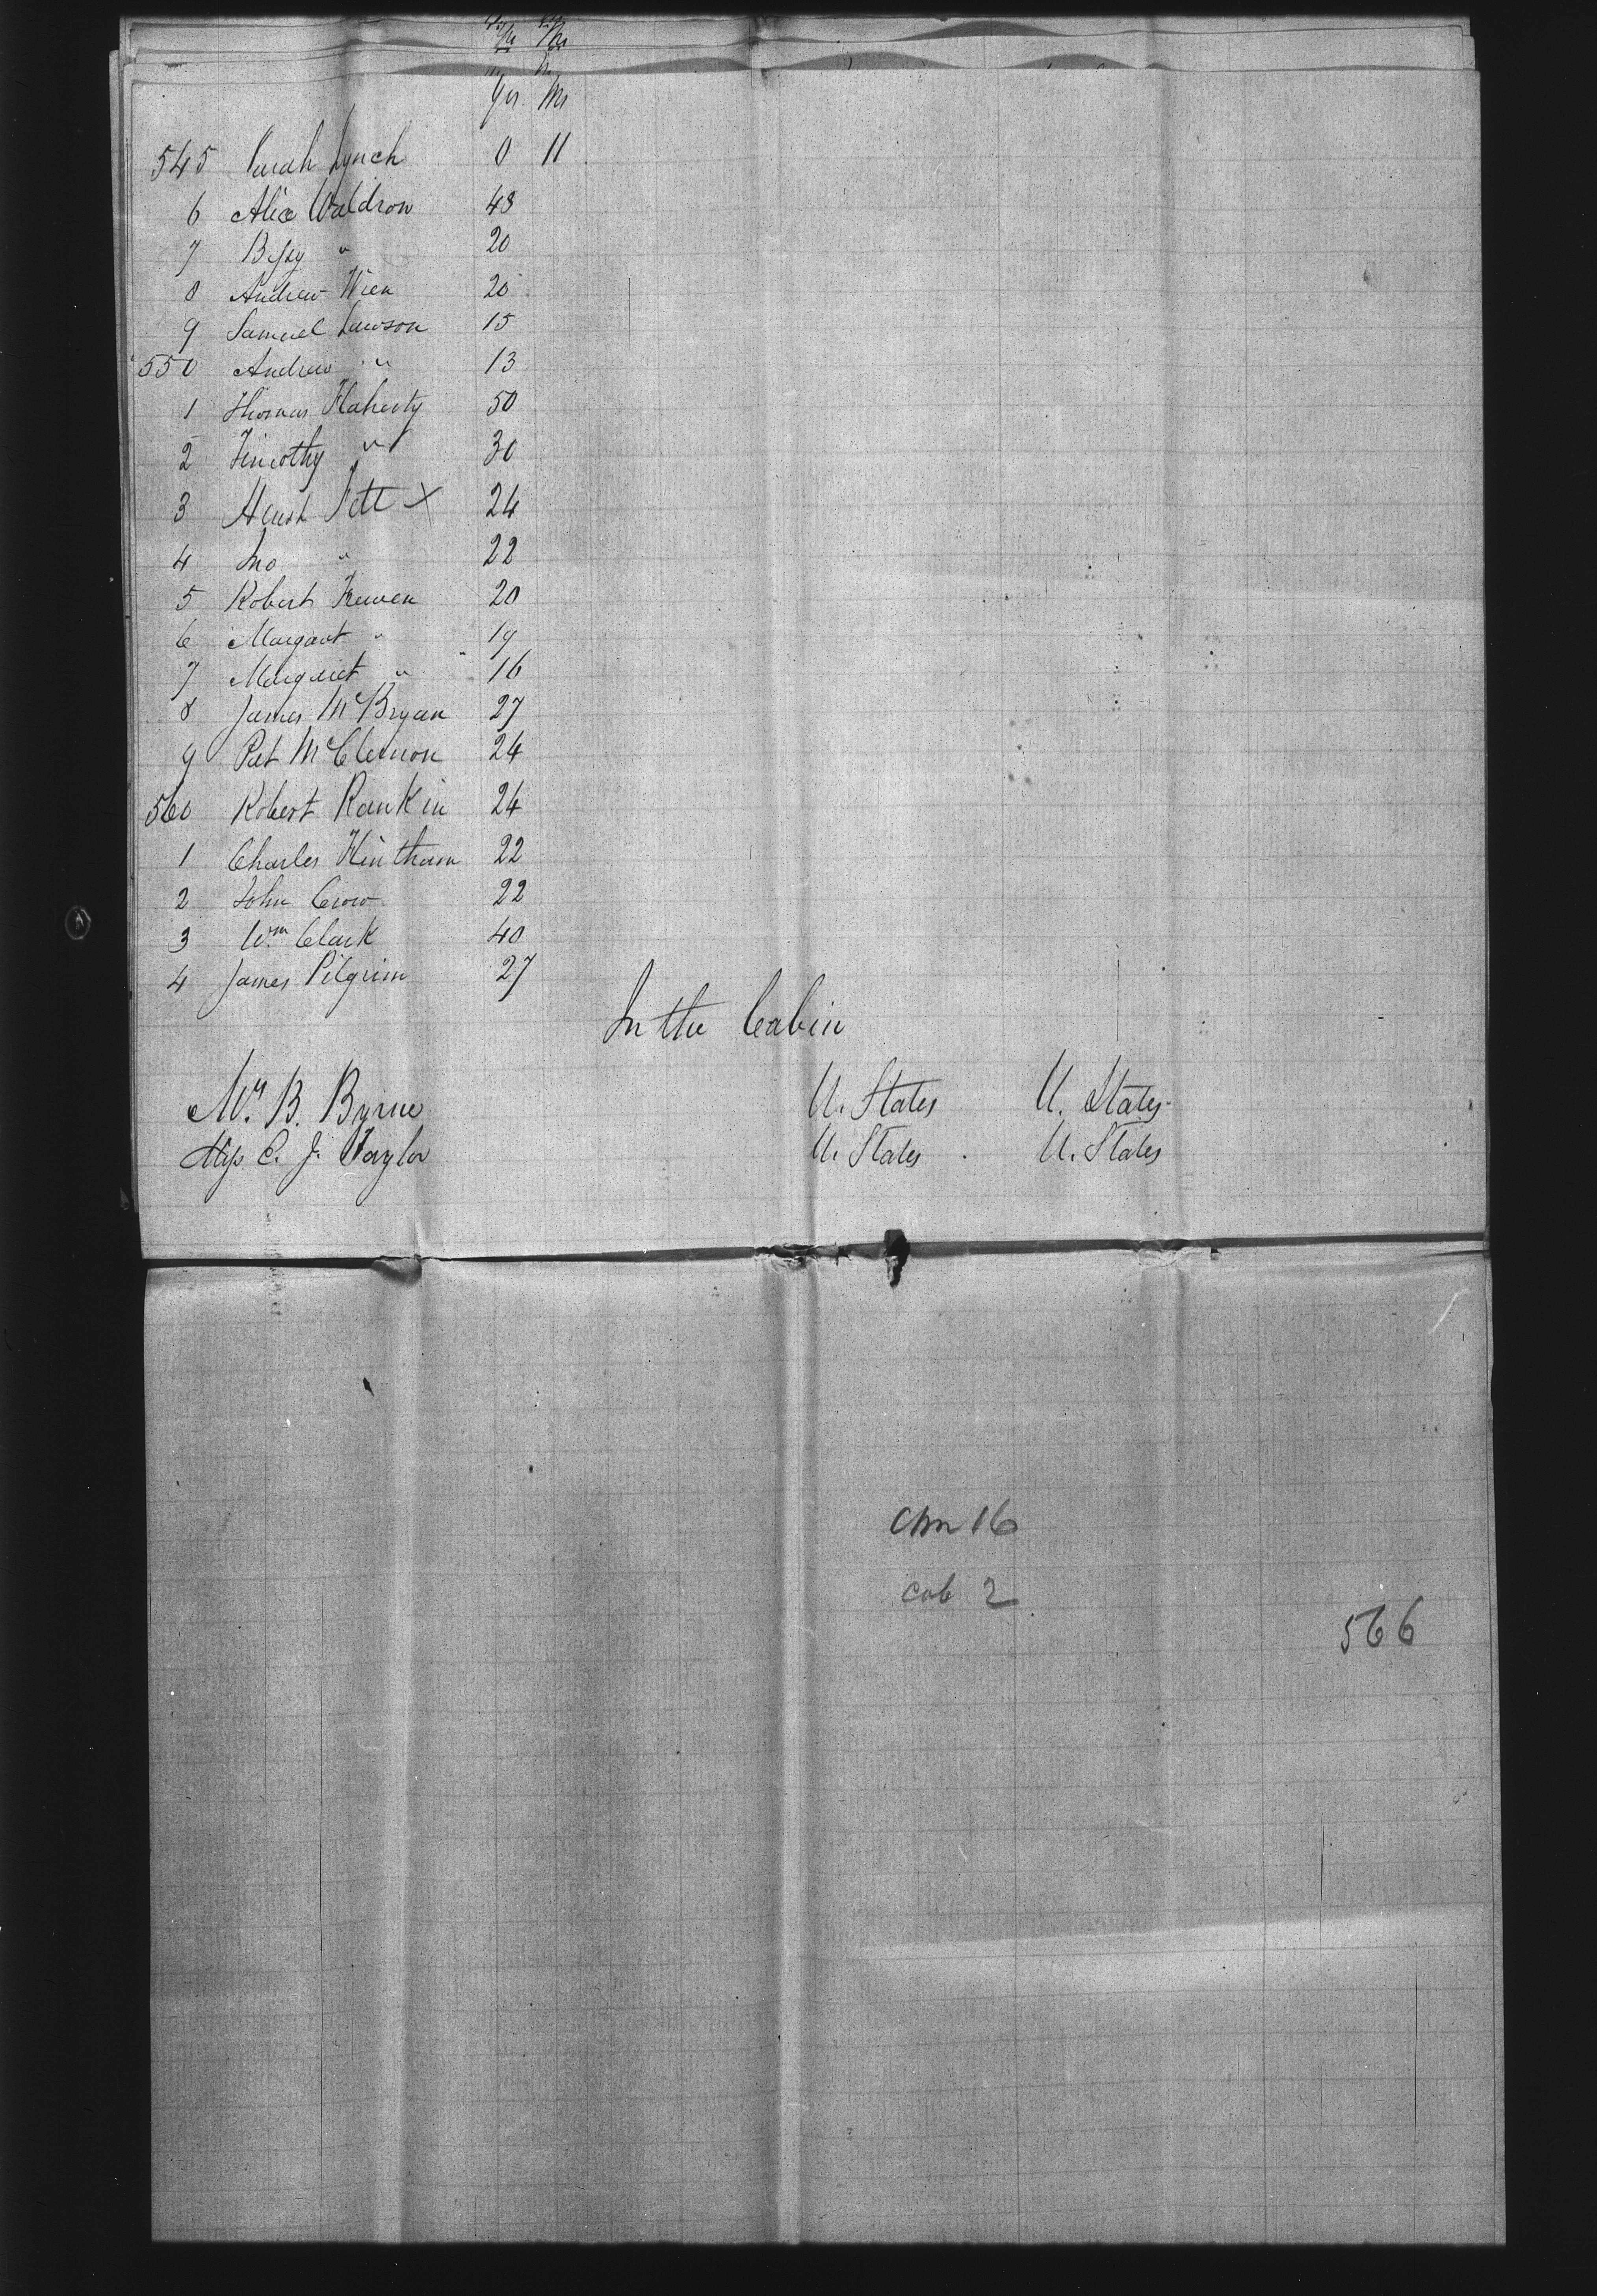 Yrs. Ms
545 Sarah Lynch 0 11
6 Alice Waldron 48
7 Bessy " 20
8 Andrew Wren 20
9 Samuel Lawson 15
550 Andrew " 13
1 Thomas Flaherty 50
2 Timothy " 30
3 24
4 Jno " 22
5 Robert 20
6 Margaret " 19
7 Margaret " 16
8 James McBryan 27
9 Pat McClernon 24
560 Robert Rankin 24
1 Charles 22
2 John Crow 22
3 Wm Clark 40
4 James Pilgrim 27
In the Cabin
B. Byrne U. States U. States
Miss C. J. Taylor U. States U. States
Chn 16
cab 2
566